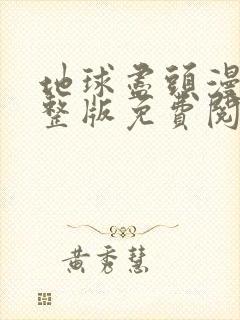 地球盡頭漫
整版免費閱
黃秀慧